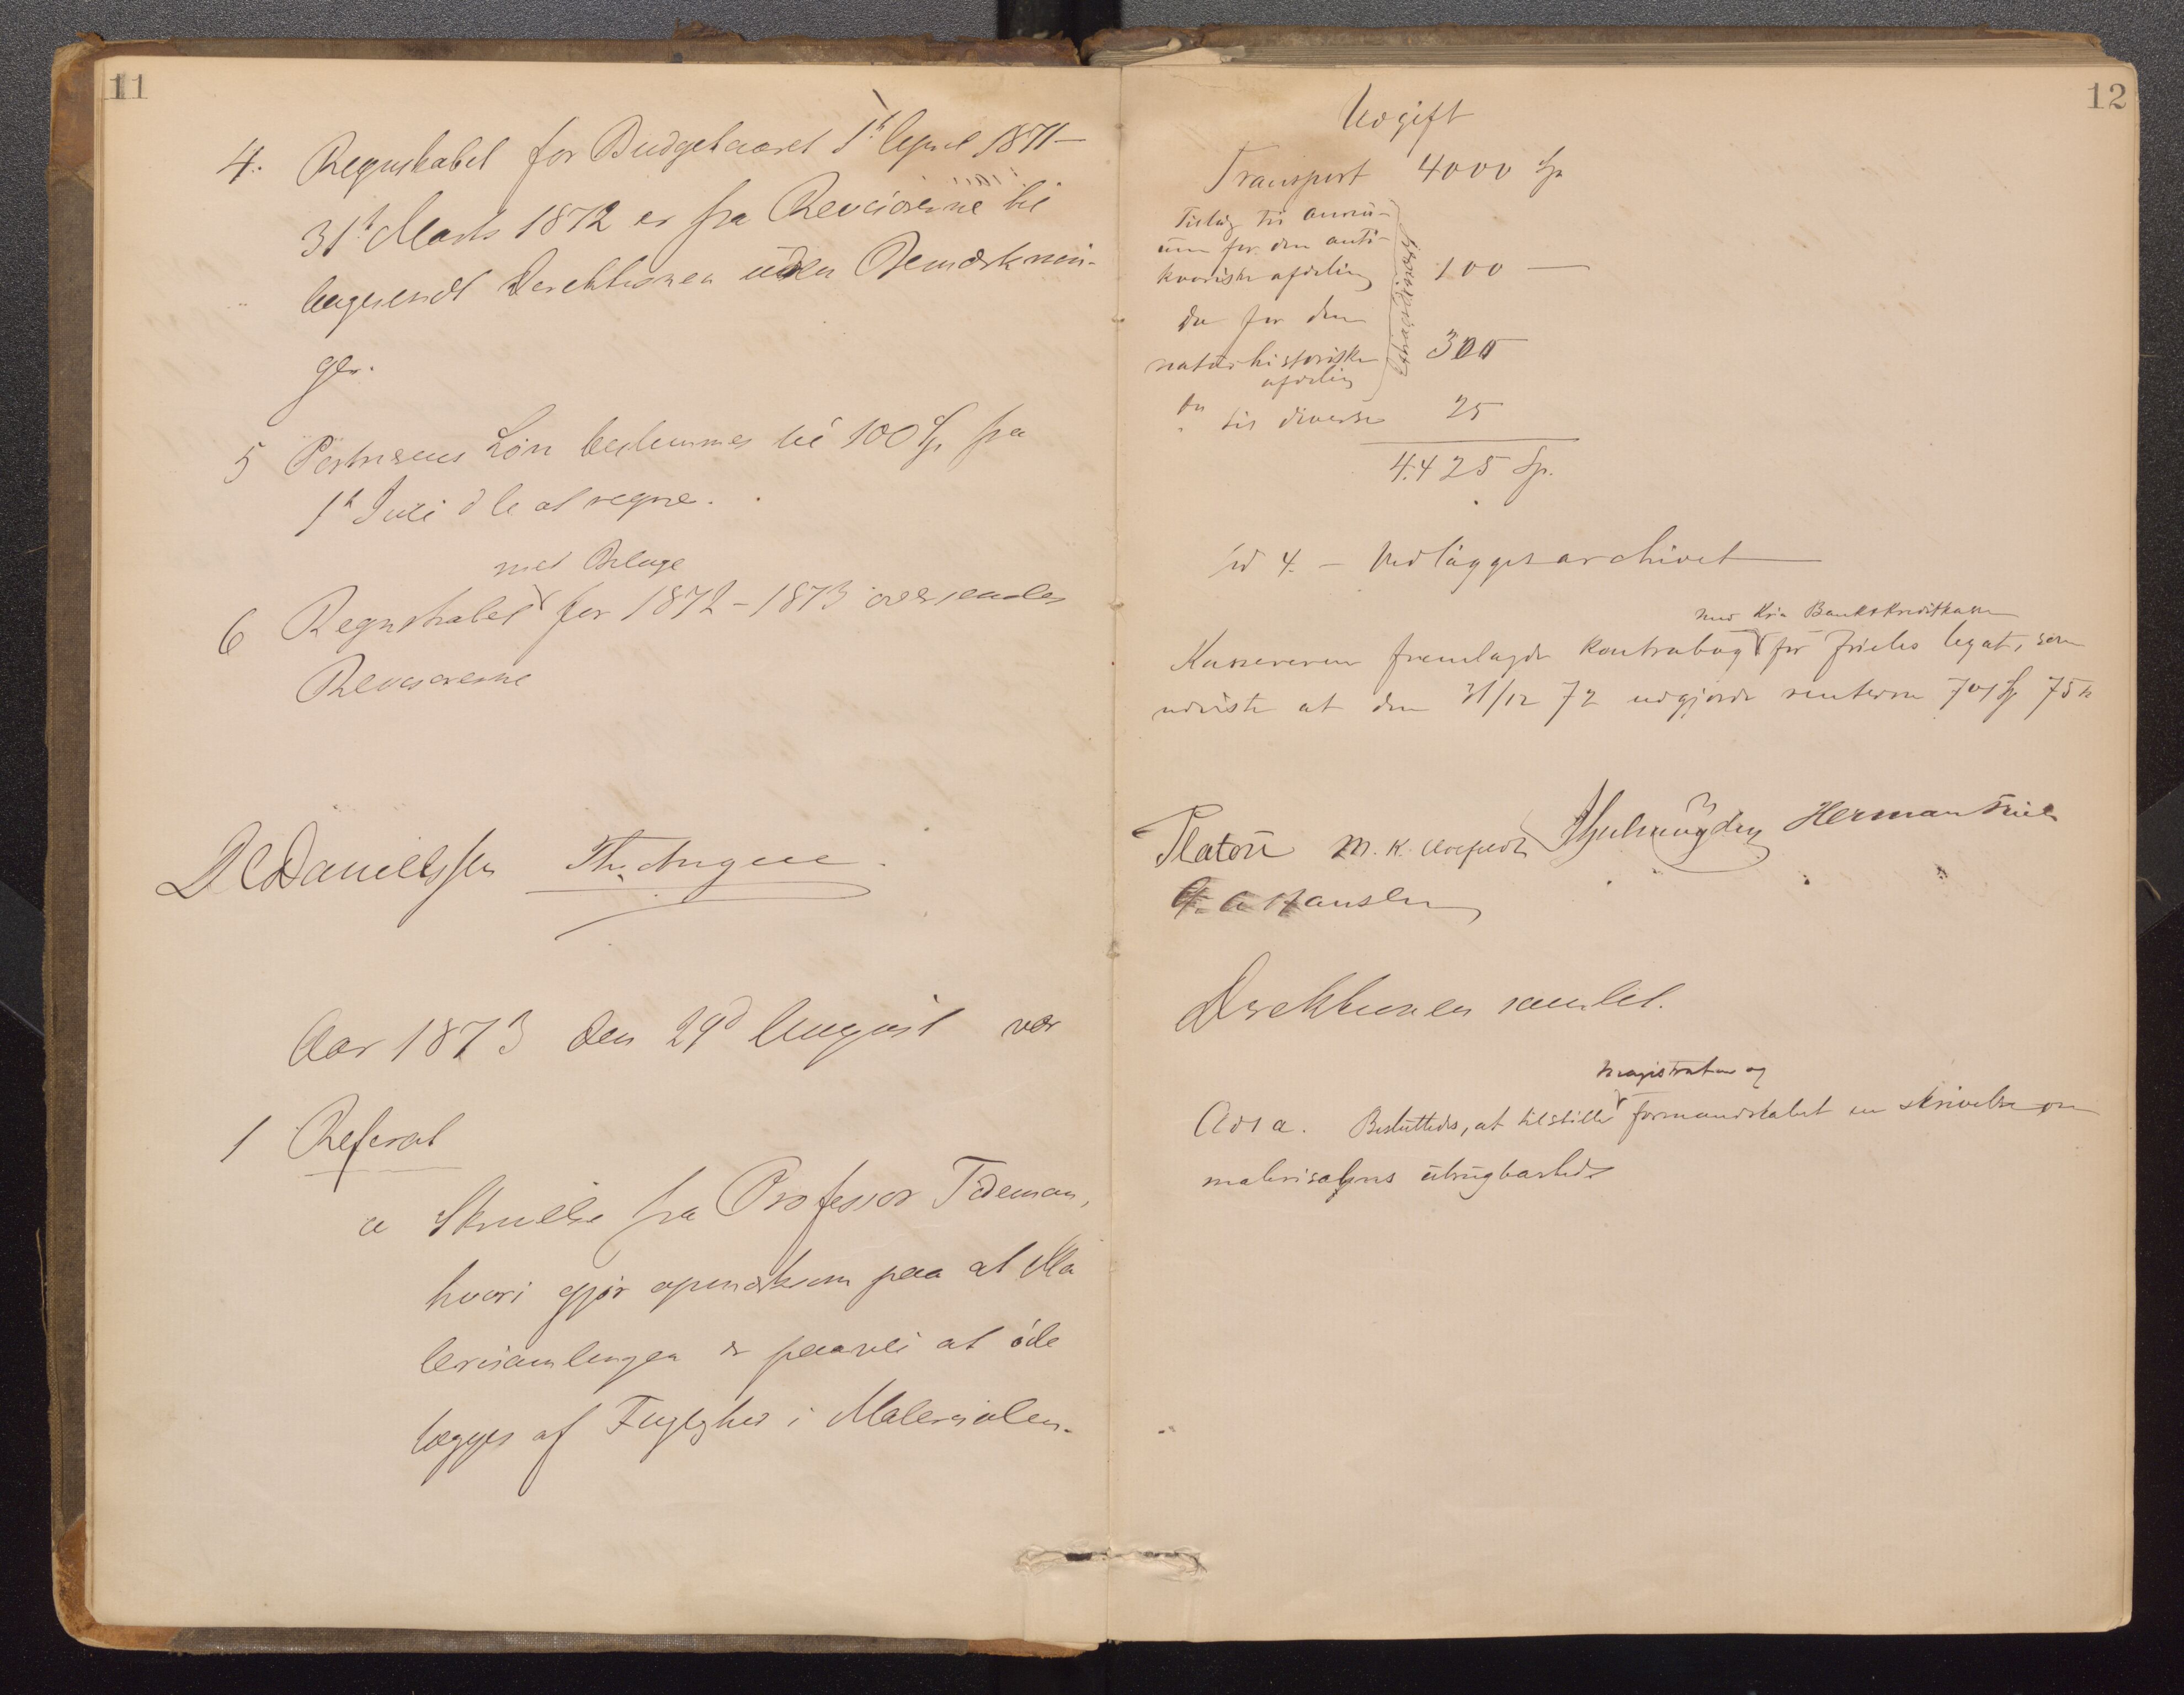 11
4. Regnskabet for Budgetaaret 1ste April 1871-
31te Marts 1872 er fra Revisorerne til
bagesendt Direktionen uden Bemærknin-
ger.
5 Portnerens Løn bestemmes til 100 Sp fra
1te Juli d A at regne.
med Bilage
6 Regnskabet for 1872-1873 oversendes
Revisorerne
DCDanielssen Th. Angell
Aar 1873 den 29d August var
1 Referat
a Skrivelse fra Professor Tidemann,
hvori gjør opmærksom paa at Ma
lerisamlingen er paavei at øde
lægges af Fugtighed i Malerisalen.
12
Udgift
Transport 4000 Sp
Tillæg til annu-
um for den anti-
kvariske afdeling 100 —
do for den
naturhistoriske 300
afdeling
extraordinært
do til diverse 25
4.425 Sp.
ad 4. - Vedlægges archivet
med Kra Banks Kreditkasse
Kassereren fremlagde Kontrabog for Frieles legat, som
udviste at den 31/12 72 udgjorde renterne 701 Sp 75 s
Platou M. K. Herman Friele
G. A. Hansen
Direktionen samlet.
magistraten og
Ad 1 a. Besluttedes, at tilstille formandskabet en skrivelse om
malerisalens ubrugbarhed